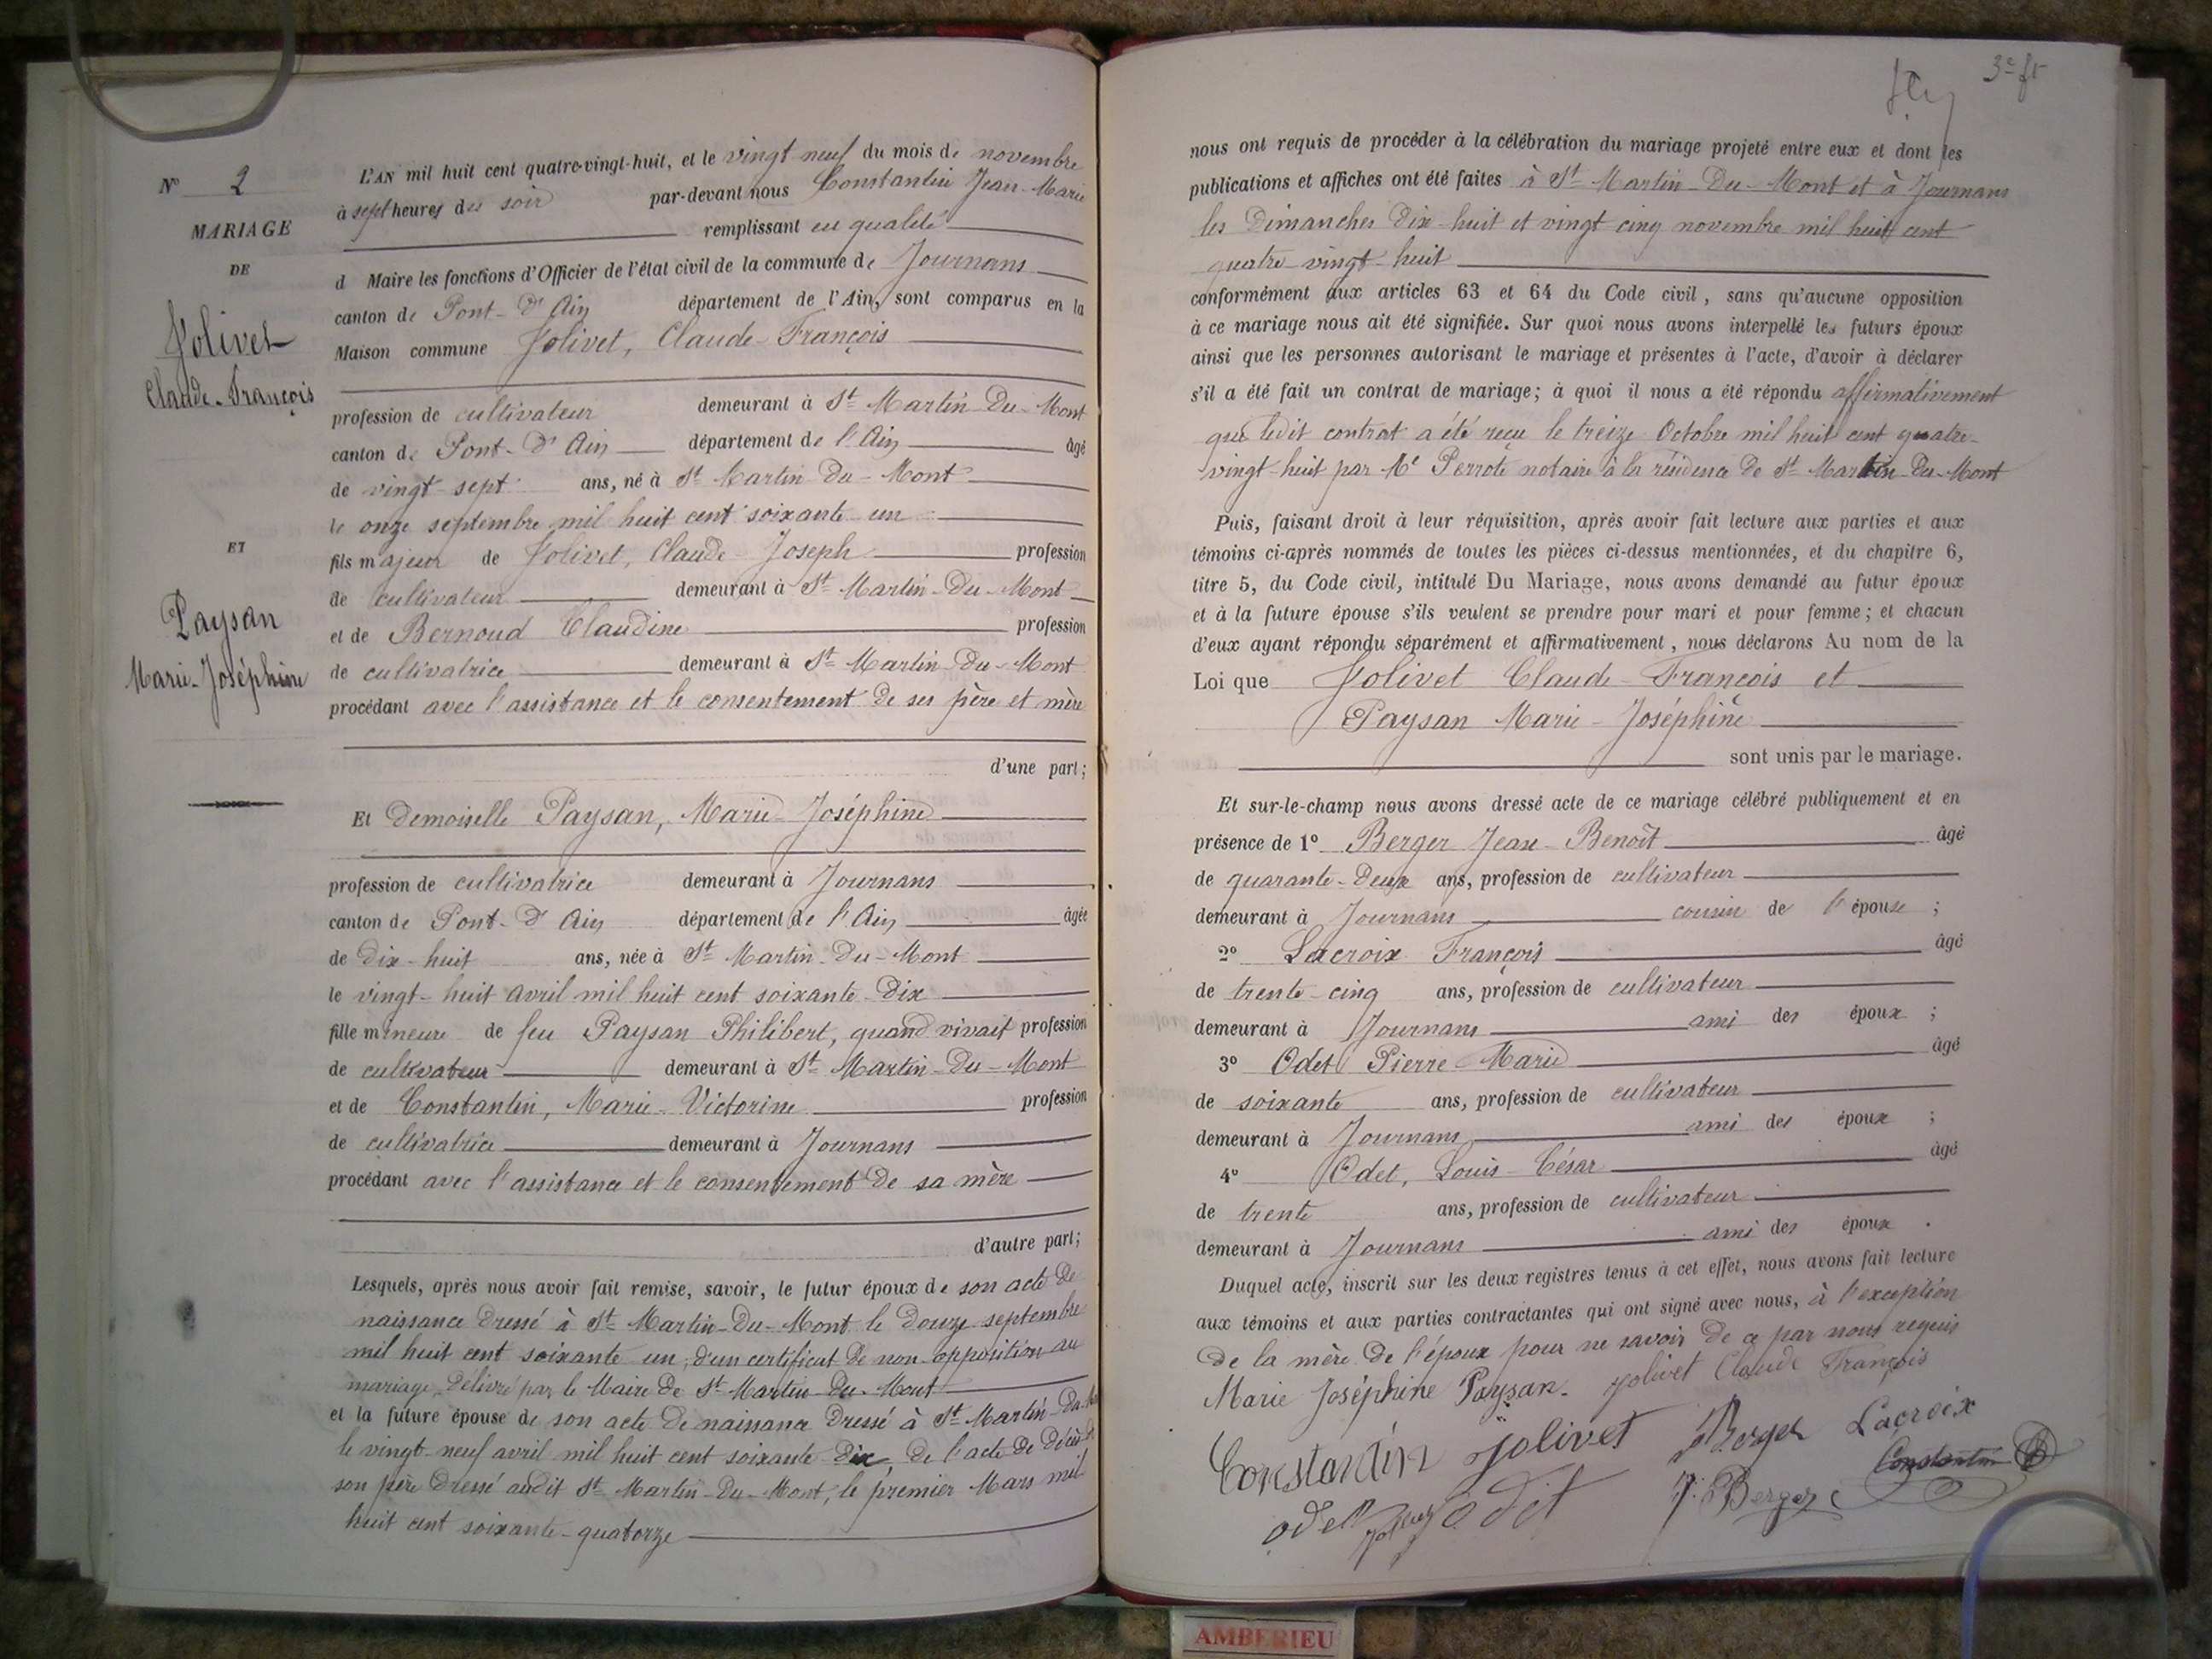 N° 2
MARIAGE
DE
Jolivet
Claude-François
ET
Paysan
Marie-Joséphine
L'AN mil huit cent quatre-vingt-huit, et le vingt neuf du mois de novembre
à sept heures du soir par-devant nous Constantin Jean-Marie
remplissant en qualité
d Maire les fonctions d'Officier de l'état civil de la commune de Journans
canton de Pont-d'Ain département de l'Ain, sont comparus en la
Maison commune Jolivet, Claude-François
profession de cultivateur demeurant à St Martin-Du-Mont
canton de Pont-d'Ain département de l'Ain âgé
de vingt-sept ans, né à St Martin-Du-Mont
le onze septembre mil huit cent soixante un
fils majeur de Jolivet, Claude-Joseph profession
de cultivateur demeurant à St Martin-Du-Mont
et de Bernoud Claudine profession
de cultivatrice demeurant à St Martin-Du-Mont
procédant avec l'assistance et le consentement de ses père et mère
d'une part;
Et Demoiselle Paysan, Marie-Joséphine
profession de cultivatrice demeurant à Journans
canton de Pont-d'Ain département de l'Ain âgée
de dix-huit ans, née à St Martin-Du-Mont
le vingt-huit avril mil huit cent soixante-dix
fille mineure de feu Paysan Philibert, quand vivait profession
de cultivateur demeurant à St Martin-Du-Mont
et de Constantin, Marie-Victorine profession
de cultivatrice demeurant à Journans
procédant avec l'assistance et le consentement de sa mère
d'autre part;
Lesquels, après nous avoir fait remise, savoir, le futur époux de son acte de
naissance dressé à St Martin-Du-Mont le douze septembre
mil huit cent soixante un, d'un certificat de non-opposition au
mariage, délivré par le Maire de St Martin-Du-Mont
et la future épouse de son acte de naissance dressé à St Martin-Du-
le vingt-neuf avril mil huit cent soixante-dix, de l'acte de décès
son père dressé audit St Martin-Du-Mont, le premier Mars mil
huit cent soixante-quatorze
3e ft
nous ont requis de procéder à la célébration du mariage projeté entre eux et dont les
publications et affiches ont été faites à St Martin-Du-Mont et à Journans
les Dimanches dix-huit et vingt cinq novembre mil huit cent
quatre-vingt-huit
conformément aux articles 63 et 64 du Code civil, sans qu'aucune opposition
à ce mariage nous ait été signifiée. Sur quoi nous avons interpellé les futurs époux
ainsi que les personnes autorisant le mariage et présentes à l'acte, d'avoir à déclarer
s'il a été fait un contrat de mariage; à quoi il nous a été répondu affirmativement
que ledit contrat a été reçu le treize Octobre mil huit cent quatre-
vingt-huit par Me notaire à la résidence de St Martin-Du-Mont
Puis, faisant droit à leur réquisition, après avoir fait lecture aux parties et aux
témoins ci-après nommés de toutes les pièces ci-dessus mentionnées, et du chapitre 6,
titre 5, du Code civil, intitulé Du Mariage, nous avons demandé au futur époux
et à la future épouse s'ils veulent se prendre pour mari et pour femme; et chacun
d'eux ayant répondu séparément et affirmativement, nous déclarons Au nom de la
Loi que Jolivet Claude-François et
Paysan Marie-Joséphine
sont unis par le mariage.
Et sur-le-champ nous avons dressé acte de ce mariage célébré publiquement et en
présence de 1° Berger Jean-Benoît âgé
de quarante-deux ans, profession de cultivateur
demeurant à Journans cousin de l'épouse ;
2° Lacroix François âgé
de trente-cinq ans, profession de cultivateur
demeurant à Journans ami des époux ;
3° Odet Pierre Marie âgé
de soixante ans, profession de cultivateur
demeurant à Journans ami des époux ;
4° Odet, Louis-César âgé
de trente ans, profession de cultivateur
demeurant à Journans ami des époux .
Duquel acte, inscrit sur les deux registres tenus à cet effet, nous avons fait lecture
aux témoins et aux parties contractantes qui ont signé avec nous, à l'exception
de la mère de l'époux pour ne savoir de ce par nous requis
Marie Joséphine Paysan. Jolivet Claude François
Constantin Jolivet Berger Lacroix
Constantin
odet Odet J. Berger
AMBERIEU